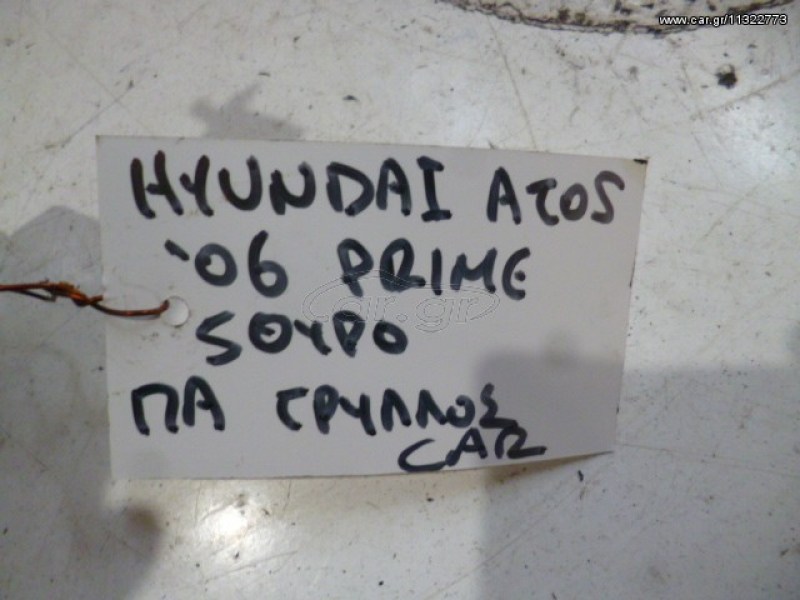 www.car.gr/11322773
HYUNDAI ATOS
'06 PRIME
5ΘΥΡΟ
car.gr
ΠΑ ΓΡΥΛΛΟΣ
CAR